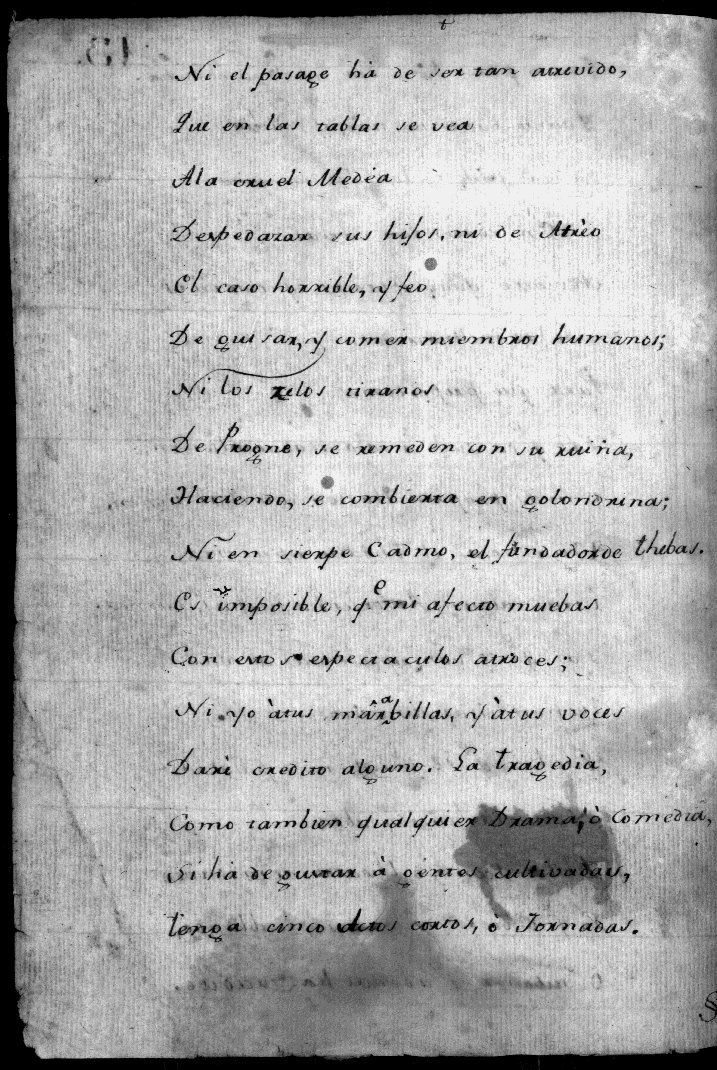 Ni el pasage há de ser tan atrevido,
Que en las tablas se vea
Ala cruel Medéa
Despedazar sus hijos, ni de Atrèo
El caso horrible, y feo
De guisar, y comer miembros humanos;
Ni los zelos tiranos
De Progne, se remeden con su ruina,
Haciendo, se combierta en golondrina;
Ni en sierpe Cadmo, el fundador de thebas.
Es imposible, qe mi afecto muebas
Con estos espectaculos atroces;
Ni yo àtus marabillas, y àtus voces
Darè credito alguno. La tragedia,
Como tambien qualquier Drama, ò Comedia,
Si há de gustar à gentes cultivadas,
tenga cinco Actos cortos, ò Jornadas.